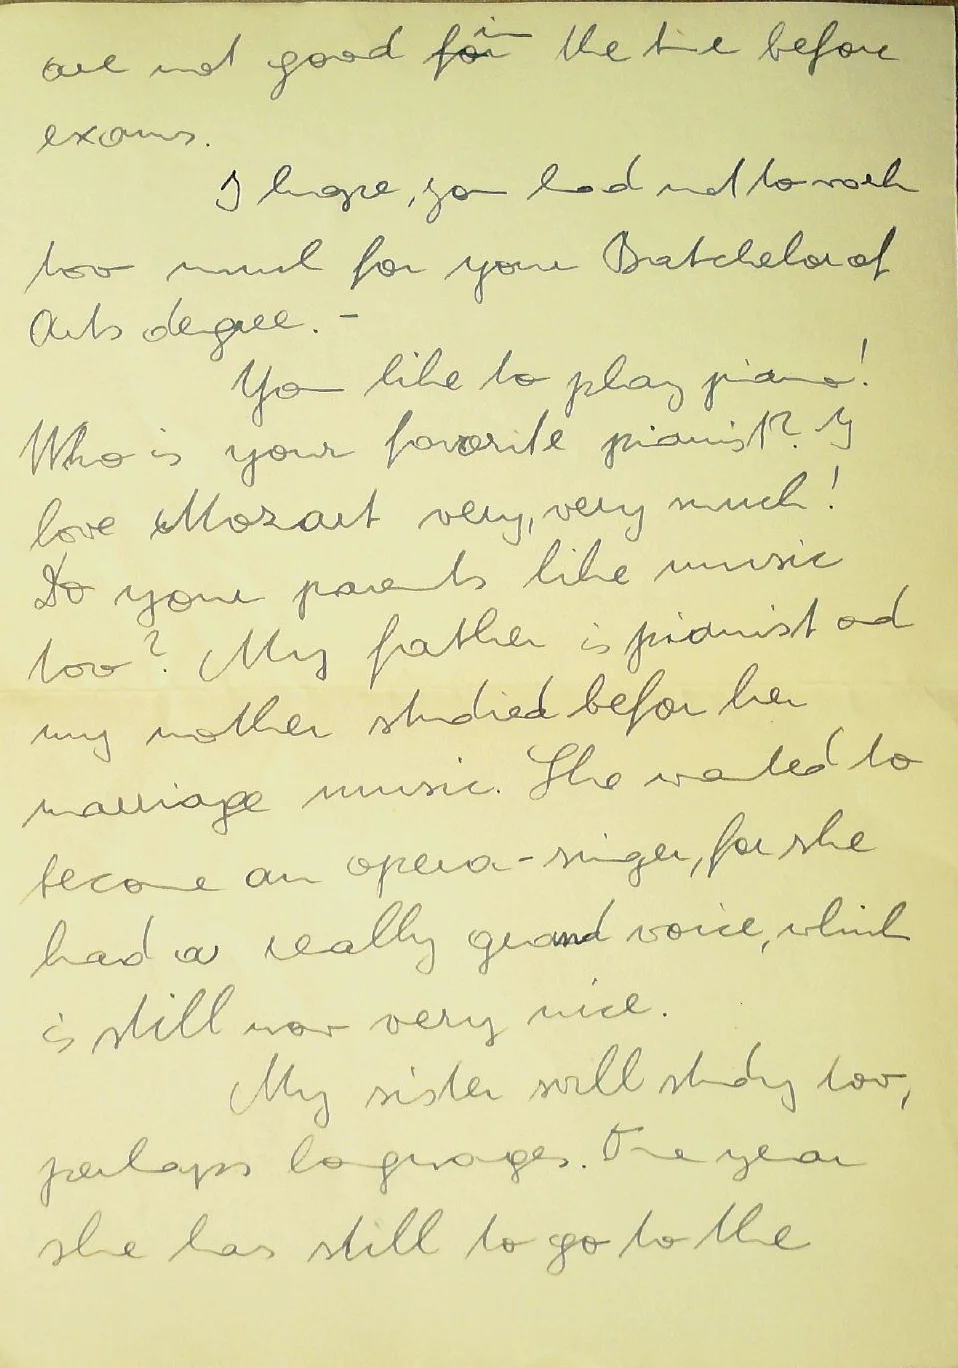 are not good in the time before
exams.
I hope, you had not to work
too much for your Batchelor of
Arts degree. -
You like to play piano!
Who is your favorite pianist? I
love Mozart very, very much!
Do your parents like music
too? My father is pianist and
my mother studied befor her
marriage music. She wanted to
become an opera-singer, for she
had a really grand voice, which
is still now very nice.
My sister will study too,
perhaps languages. One year
she has still to go to the